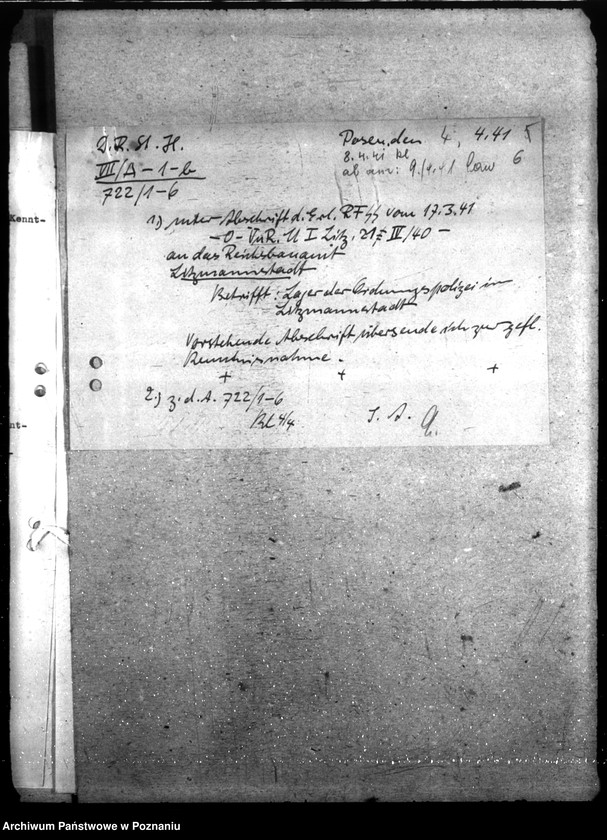 D. R. St. H.
VII/A-1-b
722/1-6
Posen, den 4. 4.41
8.4.41 kl
ab am: 9./4.41
6
1.) unter Abschrift d. Erl. RFSS vom 17.3.41
-O-VuR. U I Litz. 21 IV/40 -
an das Reichsbauamt
Litzmannstadt
Betrifft: Lager der Ordnungspolizei in
Litzmannstadt
Vorstehende Abschrift übersende ich zur gefl.
Kenntnisnahme.
+ + +
2.) z. d. A. 722/1-6
Kl 4/4
I. A.
Kennt-
nt-
Archiwum Państwowe w Poznaniu